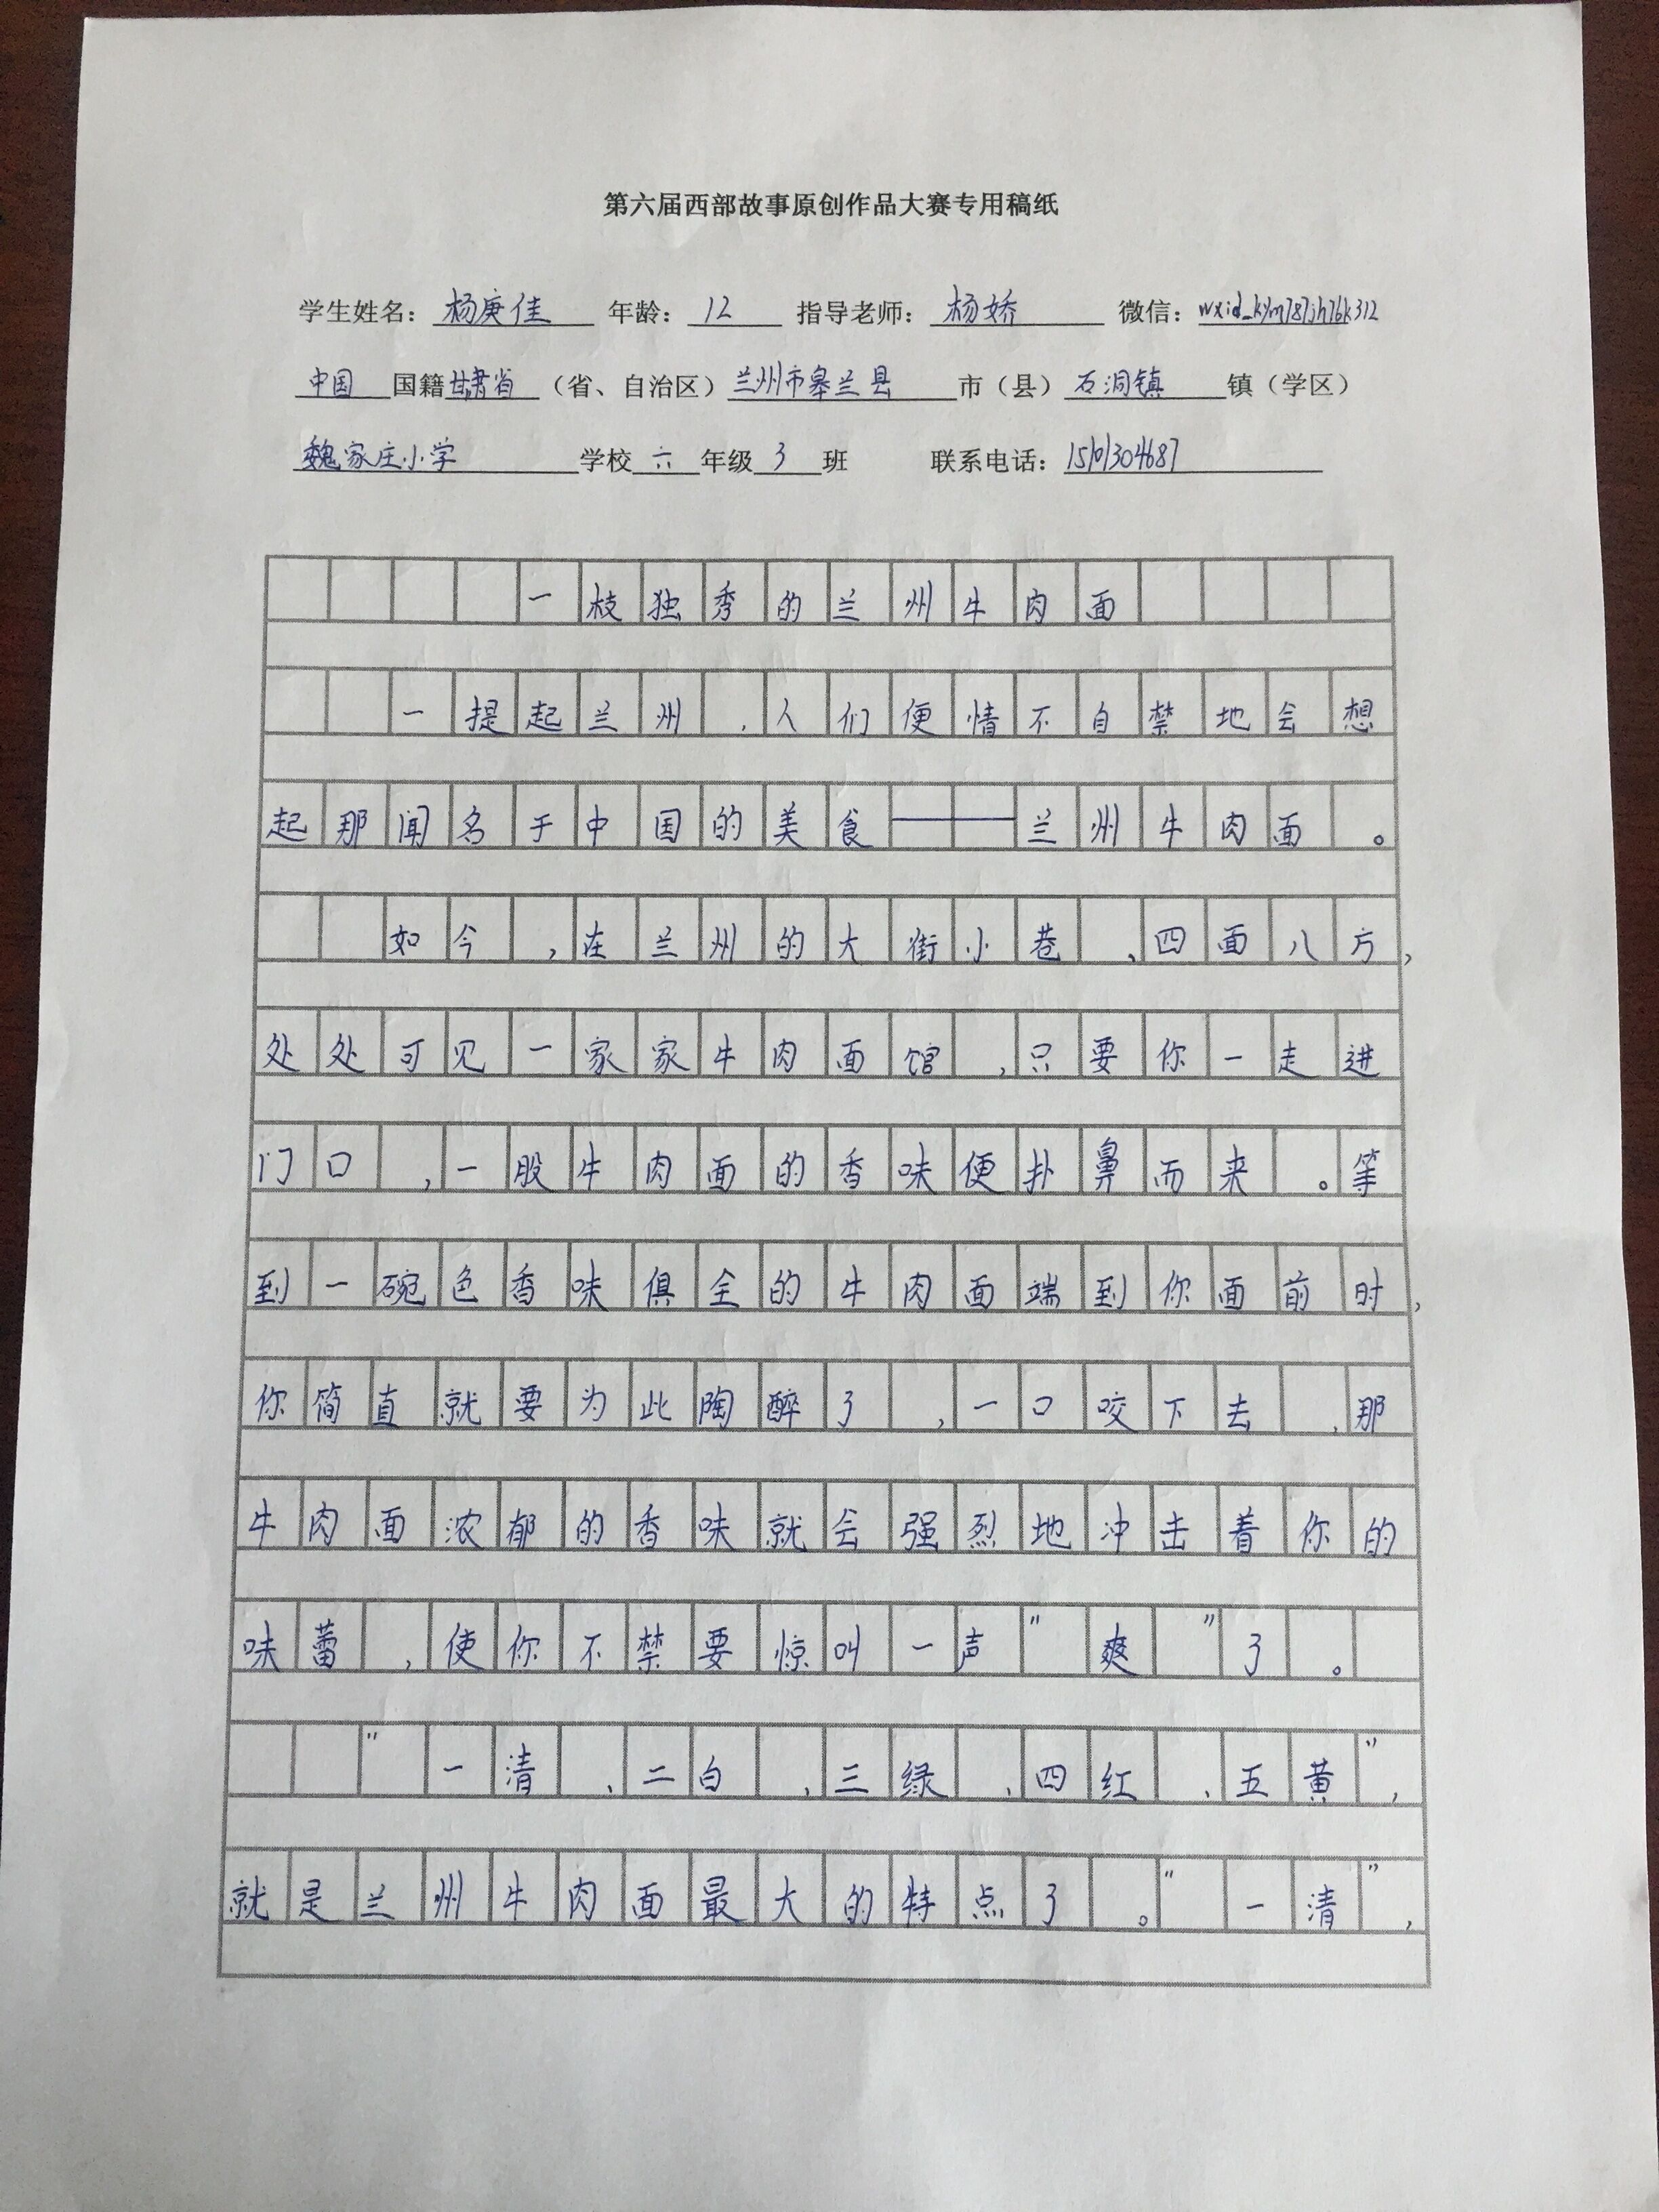 第六届西部故事原创作品大赛专用稿纸
学生姓名：杨庚佳 年龄：12 指导老师：杨娇 微信：wxid_kym787jh76k312
中国 国籍 甘肃省（省、自治区）兰州市皋兰县 市（县）石洞镇 镇（学区）
魏家庄小学 学校 六 年级 3 班 联系电话：
一枝独秀的兰州牛肉面
一提起兰州，人们便情不自禁地会想
起那闻名于中国的美食——兰州牛肉面。
如今，在兰州的大街小巷、四面八方，
处处可见一家家牛肉面馆，只要你一走进
门口，一股牛肉面的香味便扑鼻而来。等
到一碗色香味俱全的牛肉面端到你面前时，
你简直就要为此陶醉了，一口咬下去，那
牛肉面浓郁的香味就会强烈地冲击着你的
味蕾，使你不禁要惊叫一声"爽"了。
"一清、二白、三绿、四红、五黄"，
就是兰州牛肉面最大的特点了。"一清"，